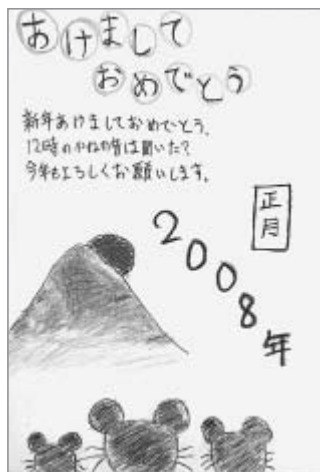 あけまして
おめでとう
新年あけましておめでとう。
12時のかねの音は聞いた?
今年もよろしくお願いします。
正月
2008年